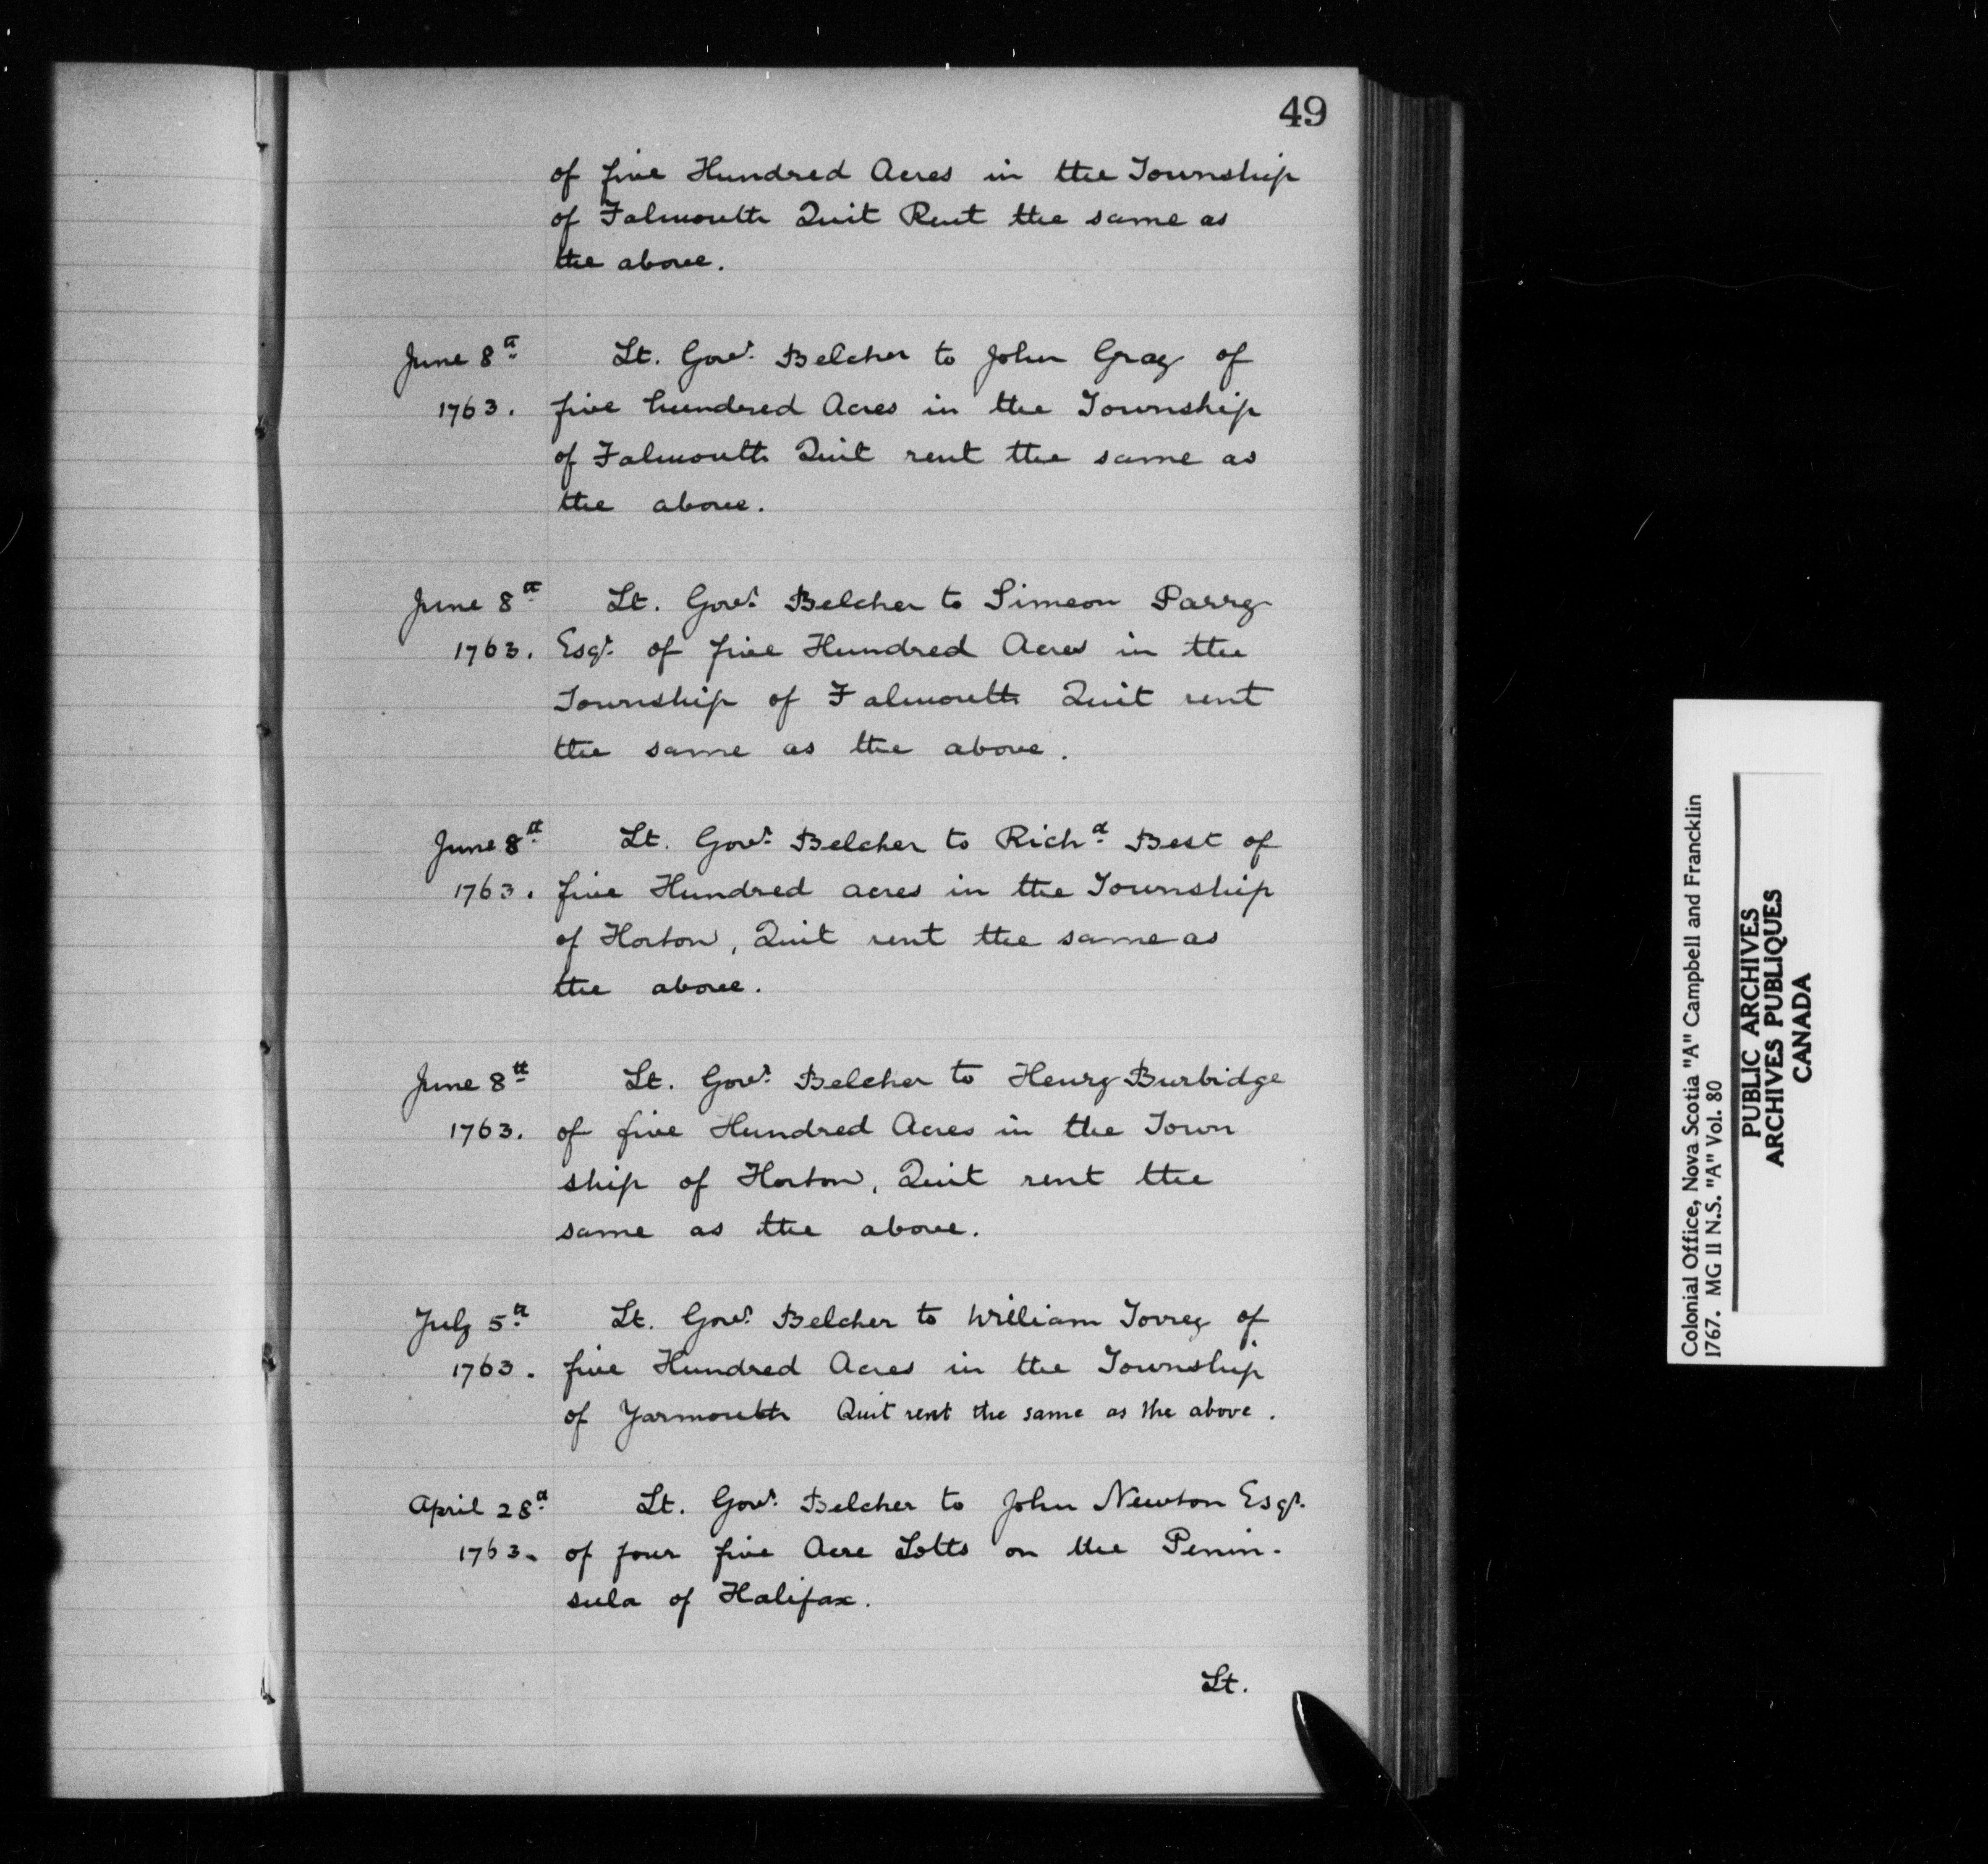 49
of five Hundred Acres in the Township
of Falmouth Quit Rent the same as
the above.
June 8th Lt. Govr. Belcher to John Gray of
1763. five hundred Acres in the Township
of Falmouth Quit rent the same as
the above.
June 8th Lt. Govr. Belcher to Simeon Parry
1763. Esqr. of five Hundred Acres in the
Township of Falmouth Quit rent
the same as the above.
June 8th Lt. Govr. Belcher to Richd. Best of
1763. five Hundred acres in the Township
of Horton, Quit rent the same as
the above.
June 8th Lt. Govr. Belcher to Henry Burbidge
1763. of five Hundred Acres in the Town
ship of Horton, Quit rent the
same as the above.
July 5th Lt. Govr. Belcher to William Torrey of
1763. five Hundred Acres in the Township
of Yarmouth Quit rent the same as the above.
April 28th Lt. Govr. Belcher to John Newton Esqr.
1763. of four five Acre Lotts on the Penin-
sula of Halifax.
Lt.
Colonial Office, Nova Scotia "A" Campbell and Francklin
1767. MG 11 N.S. "A" Vol. 80
PUBLIC ARCHIVES
ARCHIVES PUBLIQUES
CANADA